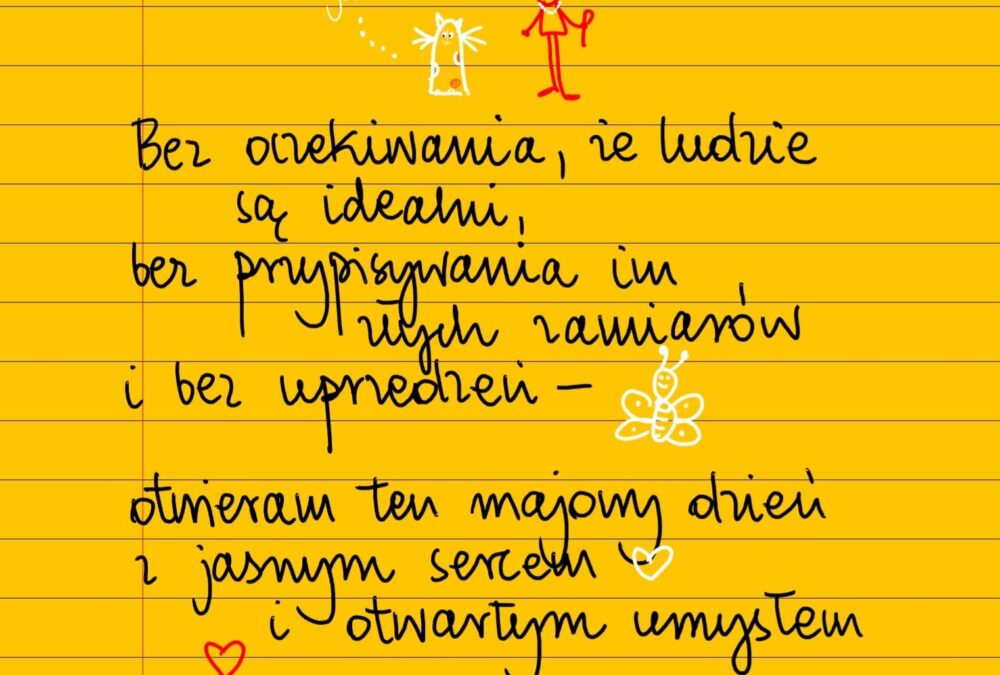 Bez oczekiwania, że ludzie
są idealni,
bez przypisywania im
złych zamiarów
i bez uprzedzeń –
otwieram ten majowy dzień
z jasnym sercem
i otwartym umysłem